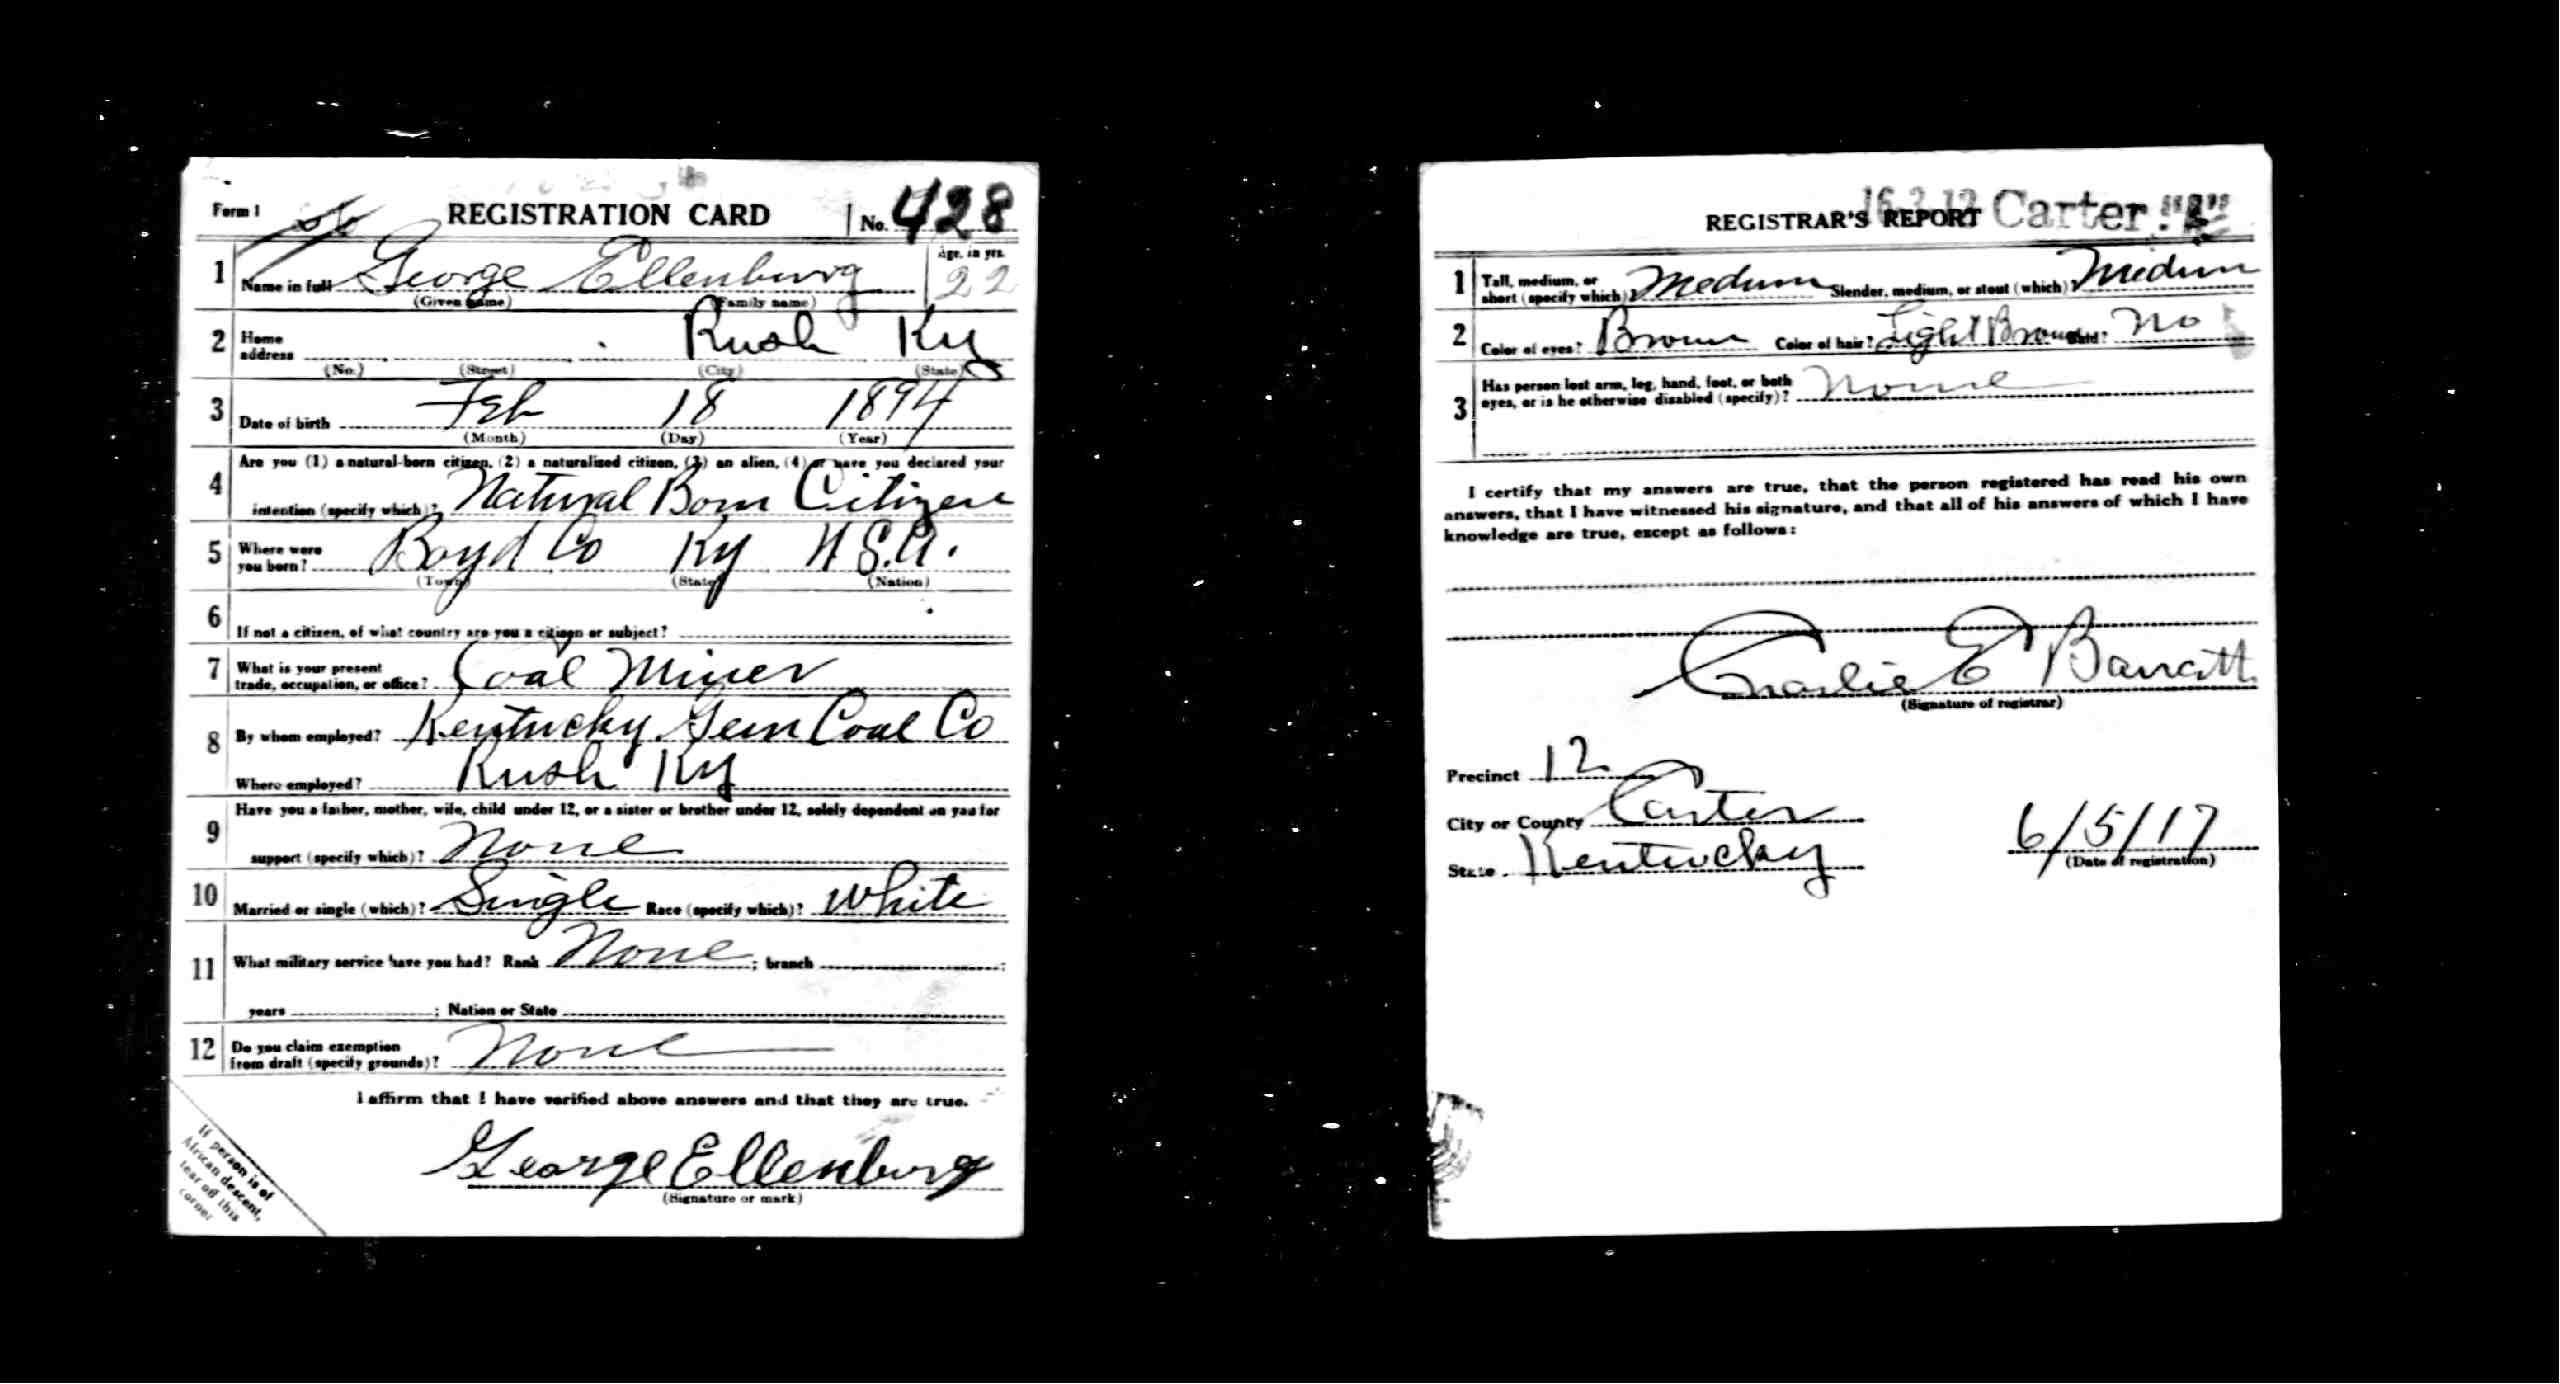 Form 1 REGISTRATION CARD No. 428
1 Name in full George Ellenburg Age, in yrs. 22
(Given name) (Family name)
2 Home address Rush Ky
(No.) (Street) (City) (State)
3 Date of birth Feb 18 1894
(Month) (Day) (Year)
4 Are you (1) a natural-born citizen, (2) a naturalized citizen, (3) an alien, (4) or have you declared your
intention (specify which)? Natural Born Citizen
5 Where were you born? Boyd Co Ky U.S.A.
(Town) (State) (Nation)
6 If not a citizen, of what country are you a citizen or subject?
7 What is your present trade, occupation, or office? Coal Miner
8 By whom employed? Kentucky Gem Coal Co
Where employed? Rush Ky
9 Have you a father, mother, wife, child under 12, or a sister or brother under 12, solely dependent on you for
support (specify which)? None
10 Married or single (which)? Single Race (specify which)? White
11 What military service have you had? Rank None ; branch ;
years ; Nation or State
12 Do you claim exemption from draft (specify grounds)? None
I affirm that I have verified above answers and that they are true.
George Ellenburg
(Signature or mark)
If person is of
African descent,
tear off this
corner
REGISTRAR'S REPORT Carter
1 Tall, medium, or short (specify which)? Medium Slender, medium, or stout (which)? Medium
2 Color of eyes? Brown Color of hair? Light Brown Bald? No
3 Has person lost arm, leg, hand, foot, or both
eyes, or is he otherwise disabled (specify)? None
I certify that my answers are true, that the person registered has read his own
answers, that I have witnessed his signature, and that all of his answers of which I have
knowledge are true, except as follows:
Charlie E Barratt
(Signature of registrar)
Precinct 12
City or County Carter
State Kentucky 6/5/17
(Date of registration)